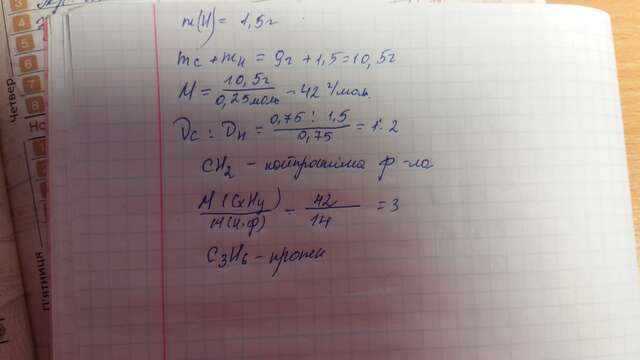 Четвер
П'ятниця
m(H) = 1,5г
mc + mн = 9г + 1,5 = 10,5г
M = 10,5г / 0,25моль = 42 г/моль
νc : νн = 0,75 : 1,5 / 0,75 = 1:2
CH2 - найпростіша ф-ла
M(CxHy) / M(н.ф) = 42 / 14 = 3
C3H6 - пропен